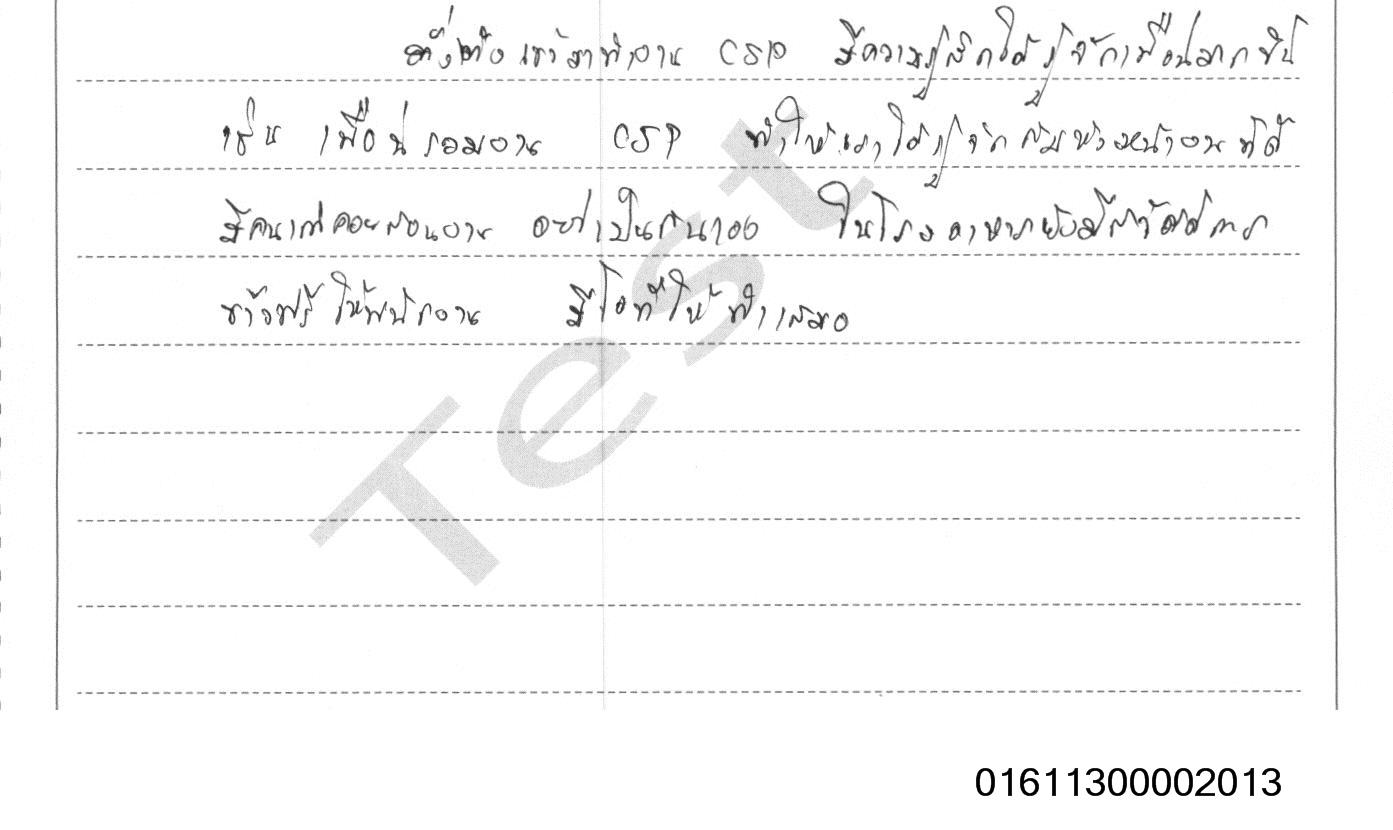 ตั้งแต่เข้ามาทำงาน CSP มีความรู้สึกได้รู้จักเพื่อนมากขึ้น
เช่น เพื่อนร่วมงาน CSP ทำให้เราได้รู้จักกับหัวหน้างานที่ดี
มีคนเก่าคอยสอนงาน อย่าเป็นกันเอง ในโรงอาหารยังมีสวัสดีการ
ข้าวฟรี ให้พนักงาน มีโอทีให้ทำเสมอ
Test
01611300002013